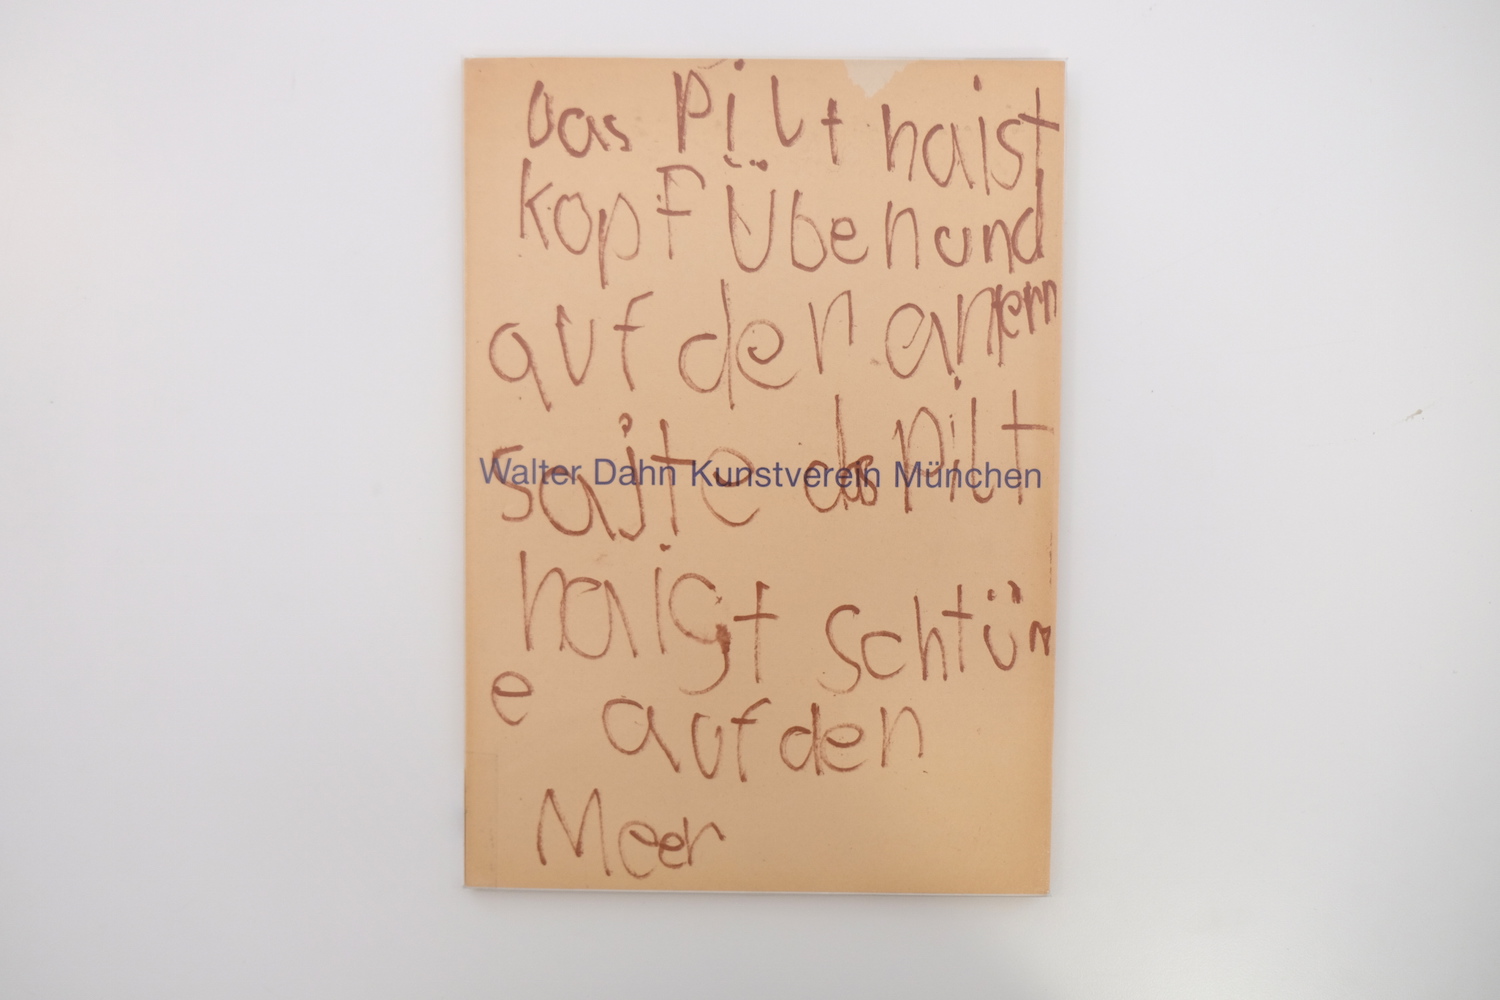 Das Pilt haist
kopf Über und
auf der anern
sajte das Pilt
haist Schtür
e auf den
Meer
Walter Dahn Kunstverein München